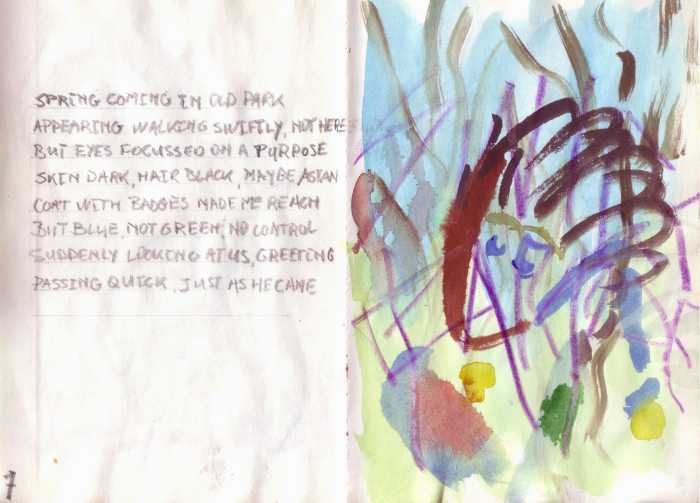 SPRING COMING IN OLD PARK
APPEARING WALKING SWIFTLY, NOT HERE
BUT EYES FOCUSSED ON A PURPOSE
SKIN DARK, HAIR BLACK, MAYBE ASIAN
COAT WITH BADGES MADE ME REACH
BUT BLUE, NOT GREEN, NO CONTROL
SUDDENLY LOOKING AT US, GREETING
PASSING QUICK, JUST AS HE CAME
7